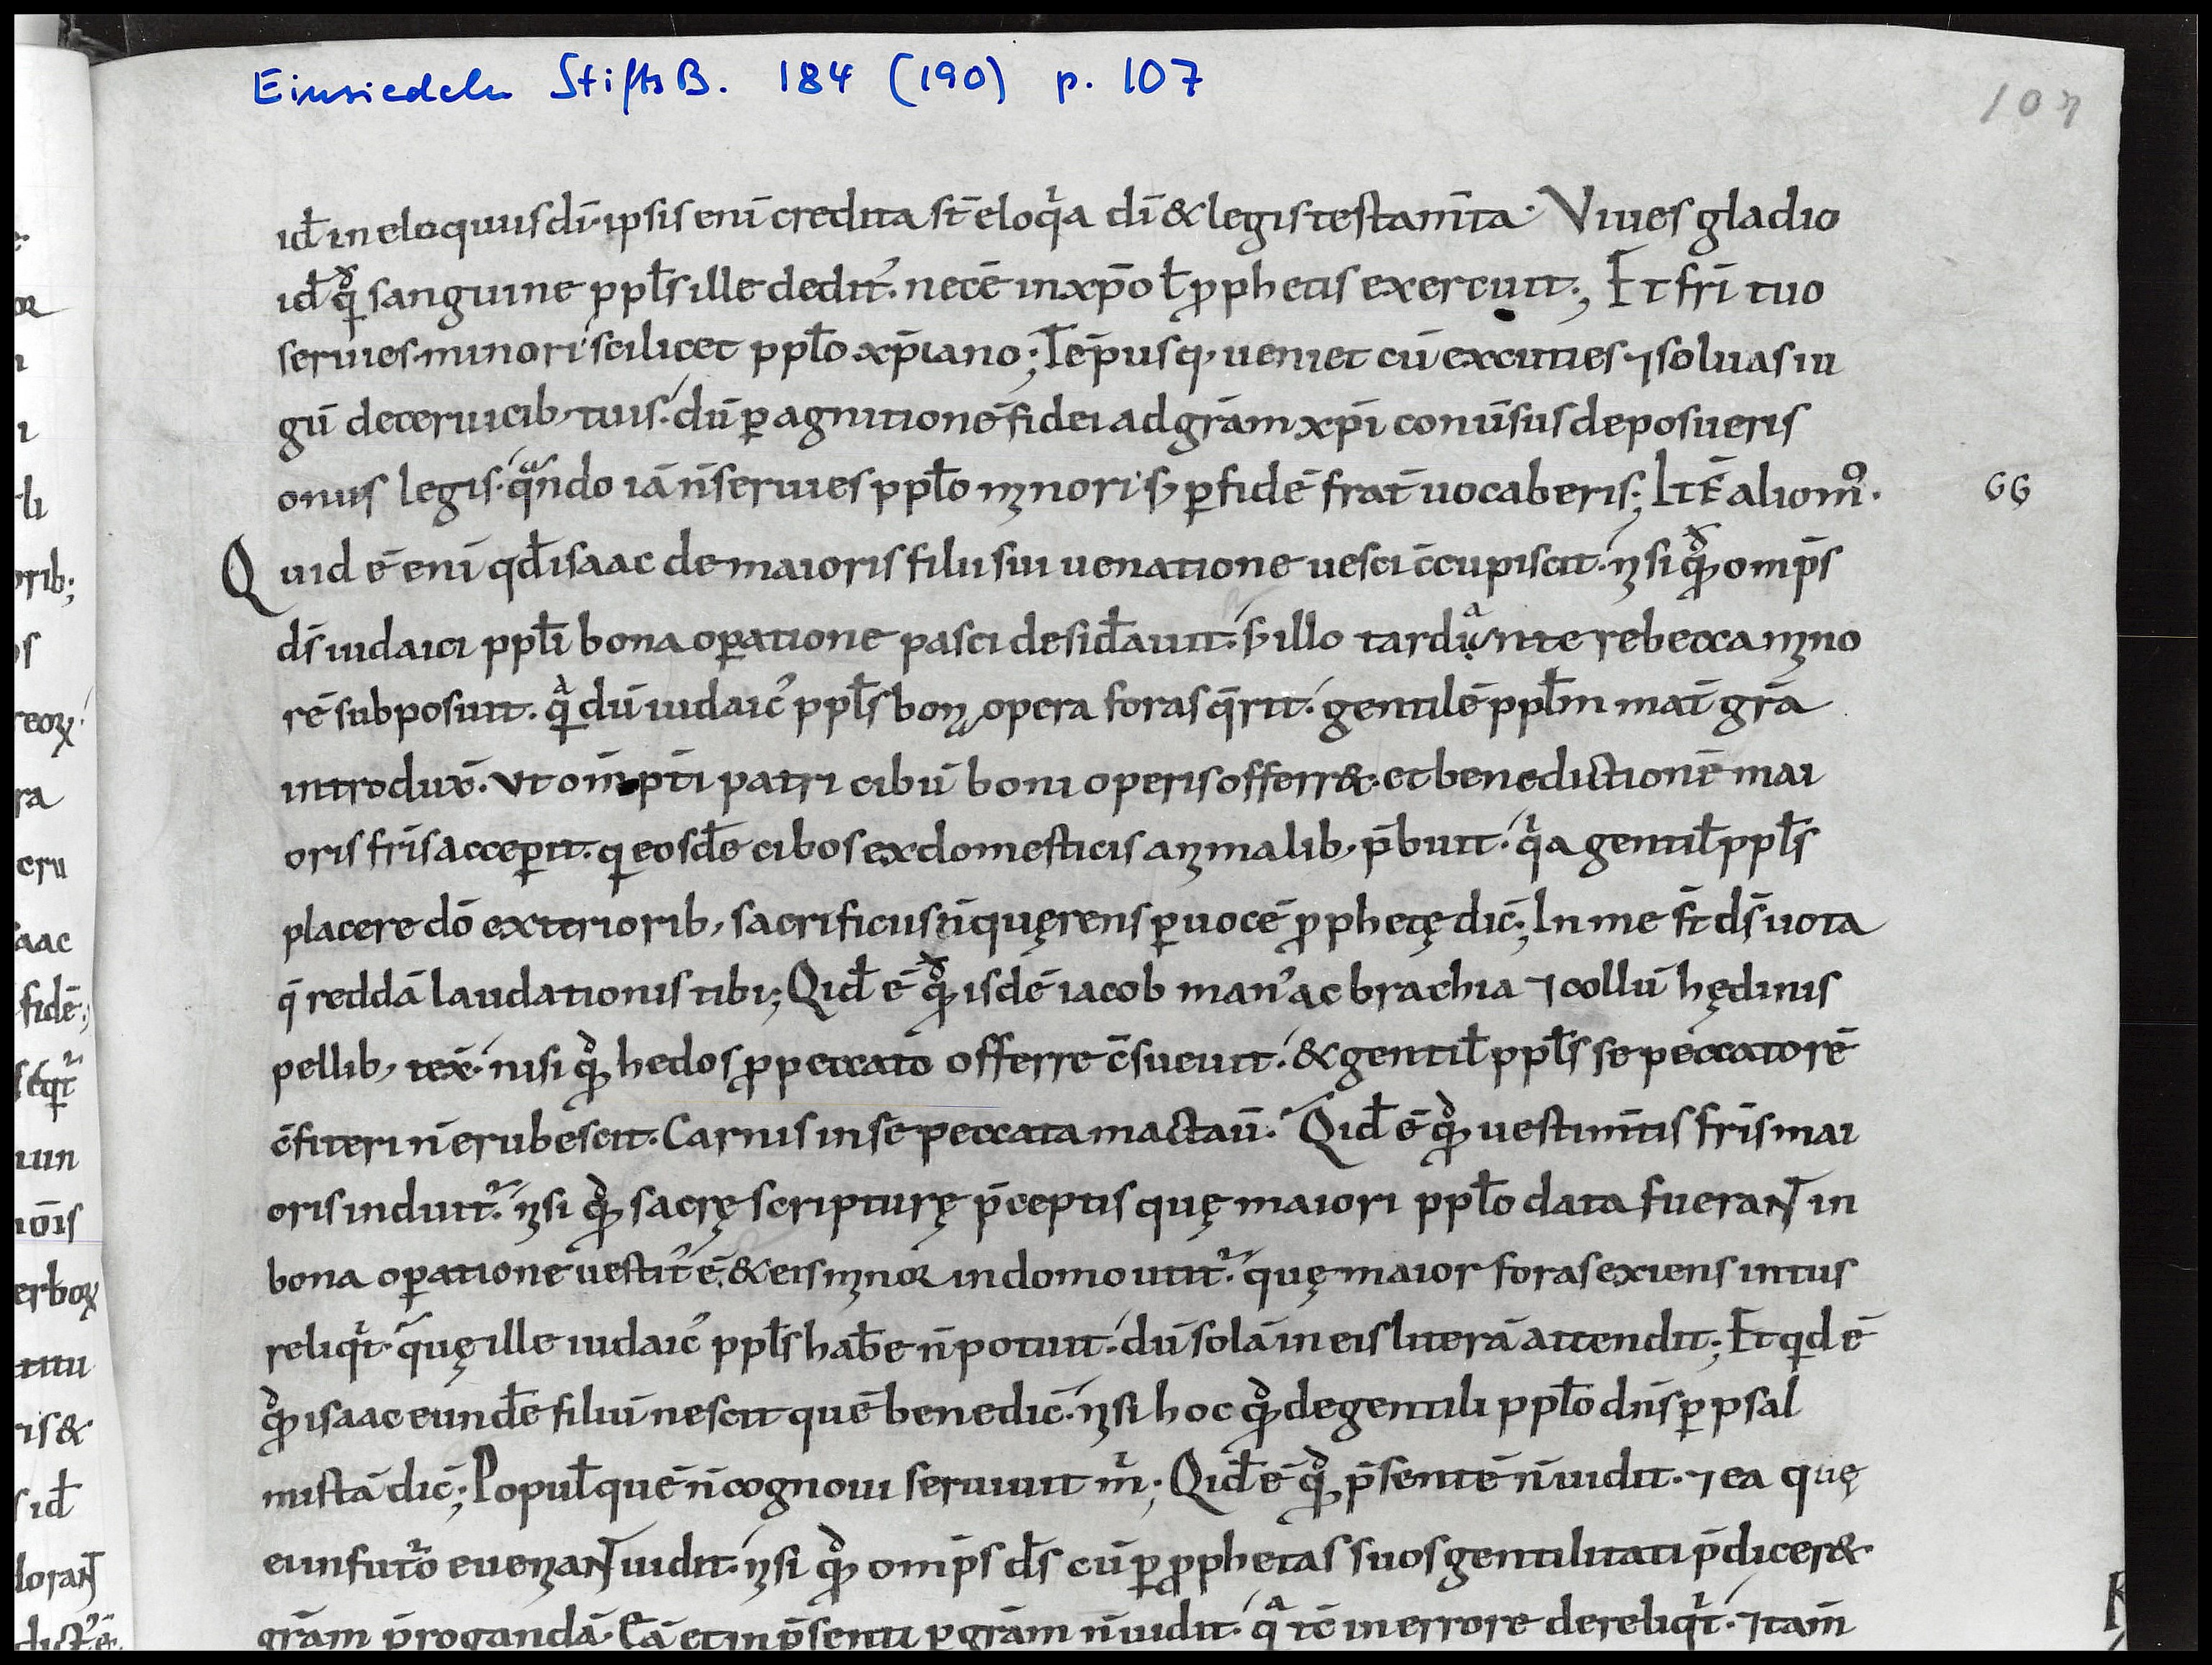 Einsiedeln StiftsB. 184 (190) p. 107
107
id̄ in eloquiis dī· ipsis enī credita st̄ eloq̇a dī & legis testam̄ta· Viues gladio
id̄ q̇ sanguine ppl̄s ille dedit᾿· necē in xp̄o ł ꝓphetis exercuit; Et frī tuo
seruies· minori scilicet ppl̄o xp̄iano; Tēpusq· ueniet cū excuties ⁊ soluas iu
gū de ceruicib· tuis· dū ꝑ agnitionē fidei ad grām xp̄i conūsus deposueris
onus legis· qͣndo iā n̄ seruies ppl̄o minori· s; ꝑ fidē frat̄ uocaberis; Itē alio mo᾿·
GG
Quid ē enī qd̄ isaac de maioris filii sui uenatione uesci c̄cupiscit· nisi qđ omp̄s
ds̄ iudaici ppl̄i bona oꝑatione pasci desid̄auit· s; illo tardante rebecca mino
rē subposuit· qͣ dū iudaic᾿ ppl̄s bona opera foras q̄rit· gentilē ppl̄m mat̄ grā
introdux̄· Vt om̄ptī patri cibū boni operis offerr&· et benedictionē mai
oris frīs acceꝑit· q eosdē cibos ex domesticis animalib· p̄buit· q̇a gentil̄ ppl̄s
placere dō exteriorib· sacrificiis n̄ quęrens ꝑ uocē ꝓphetę dic̄; In me st̄ ds̄ uota
q̄ reddā laudationis tibi; Qid̄ ē qđ isdē iacob man᾿ ac brachia ⁊ collū hędinis
pellib· tex̄· nisi qđ hedos ꝓ peccato offerre c̄sueuit· & gentil̄ ppl̄s se peccatorē
c̄fiteri n̄ erubescit· Carnis in sē peccata mactaū· Qid̄ ē qđ uestim̄tis frīs mai
oris induit᾿· nisi qđ sacrę scripturę p̄ceptis quę maiori ppl̄o data fuerant in
bona oꝑatione uestit᾿ ē· & eis minor in domo utit᾿· quę maior foras exiens intus
reliq̇t· quę ille iudaic᾿ ppl̄s hab̄e n̄ potuit· dū solā in eis literā attendit; Et qd ē
qđ isaac eundē filiū nescit quē benedic̄· nisi hoc qđ de gentili ppl̄o dn̄s ꝑ psal
mistā dic̄; Popul̄ quē n̄ cognoui seruiuit m̄; Qid̄ ē qđ p̄sentē n̄ uidit· ⁊ ea quę
ei in futᷣo euenant uidit· nisi qđ omp̄s ds̄ cū ꝑ ꝓphetas suos gentilitati p̄dicer&
grām p̄rogandā· Eā et in p̄senti ꝑ grām n̄ uidit· qͣ tc̄ in errore dereliq̇t· ⁊ tam̄